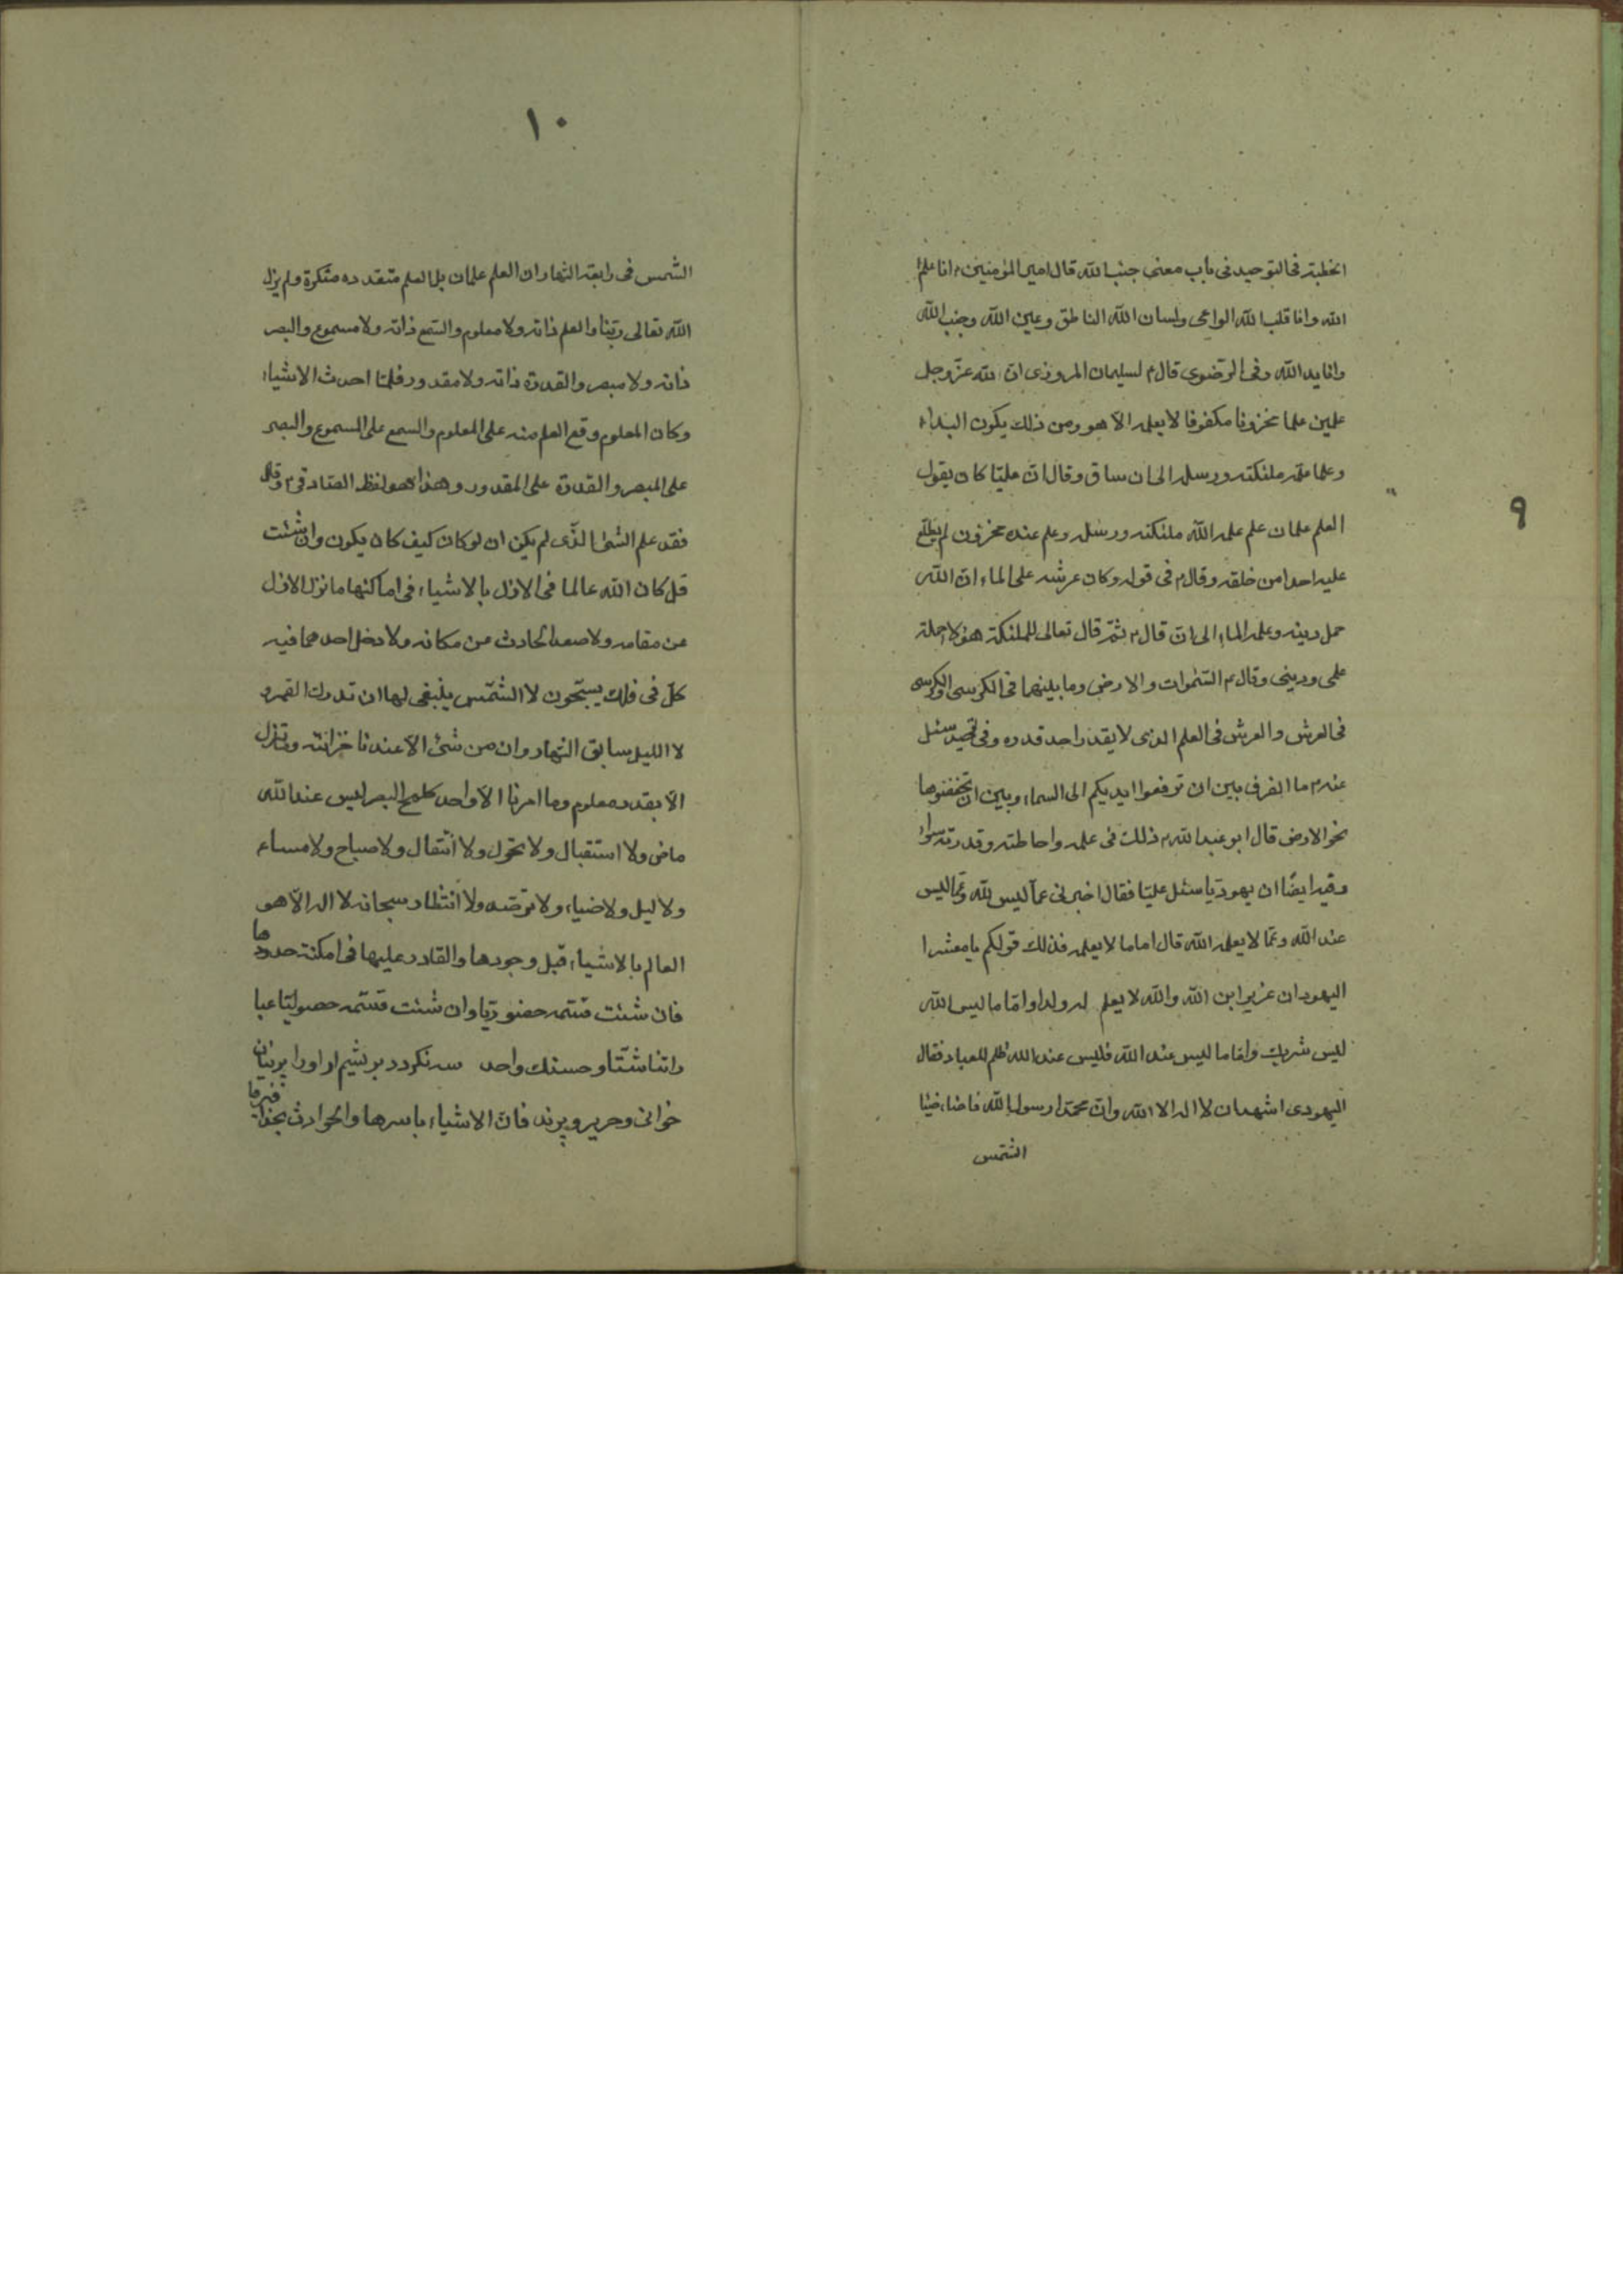 ٩
الخطبة فی التوحید فی باب معنی جنب الله قال امیر المؤمنین ع انا علم
الله وانا قلب الله الواعی ولسان الله الناطق وعین الله وجنب الله
وانا ید الله وفی الرضوی قال ع لسلیمان المروزی ان لله عزّ وجل
علمین علما مخزونا مکفوفا لا یعلمه الا هو ومن ذلک یکون البداء
وعلما علمه ملئکته ورسله الی ان ساق وقال انّ علیّا کان یقول
العلم علمان علم علمه الله ملئکته ورسله وعلم عنده مخزون لم یطّلع
علیه احدا من خلقه وقال ع فی قوله وکان عرشه علی الماء ان الله
حمل دینه وعلمه الماء الی ان قال ع ثمّ قال تعالی للملئکة هؤلاء حملة
علمی ودینی وقال ع السّموات والارض وما بینهما فی الکرسی والکرسی
فی العرش والعرش فی العلم الذی لا یقدر احد قدره وفی سئل
عنه ع ما الفرق بین ان ترفعوا ایدیکم الی السماء وبین ان تخفضوها
نحو الارض قال ابو عبد الله ع ذلک فی علمه واحاطته وقدرته سواء
وفیه ایضًا ان یهودیّا سئل علیّا فقال اخبرنی عمّا لیس لله وعمّا لیس
عند الله وعمّا لا یعلمه الله قال اما ما لا یعلمه فذلک قولکم یا معشر ا
الیهود ان عزیر ابن الله والله لا یعلم له ولدا وامّا ما لیس لله
لیس شریک وامّا ما لیس عند الله فلیس عند الله ظلم للعباد فقال
الیهودی اشهد ان لا اله الا الله وان محمّدا رسول الله فاضاء ضیاء
الشّمس
١٠
الشّمس فی رابعة النهار ان العلم علمان بل العلم متعدده متکثرة ولم یزل
الله تعالی ربّنا والعلم ذاته ولا معلوم والسّمع ذاته ولا مسموع والبصر
ذاته ولا مبصر والقدرة ذاته ولا مقدور فلمّا احدث الاشیاء
وکان المعلوم وقع العلم منه علی المعلوم والسمع علی المسموع والبصر
علی المبصر والقدرة علی المقدور وهذا هو لفظ الصّادق ع وقل
فقد علم الشئ الذّی لم یکن ان لو کان کیف کان یکون وان شئت
قل کان الله عالما فی الازل بالاشیاء فی اماکنها ما نزل الازل
من مقامه ولا صعد الحادث من مکانه ولا دخل احدهما فیه
کلّ فی فلک یسبّحون لا الشّمس ینبغی لها ان تدرک القمر و
لا اللیل سابق النهار وان من شئ الا عندنا خزائنه وما ننزل
الّا بقدر معلوم وما امرنا الّا واحد کلمح البصر لیس عند الله
ماض ولا استقبال ولا تحوّل ولا انتقال ولا صباح ولا مساء
ولا لیل ولا ضیاء ولا ولا انتظار سبحانه لا اله الّا هو
العالم بالاشیاء قبل وجودها والقادر علیها فی امکنة حدودها
فان شئت فسّمه حضوریّا وان شئت فسّمه حصولیّا عبا
راتنا شتّا وحسنک واحد سه نکردد بریشم ار اورا پرنیان
خوانی وحریر وپرند فان الاشیاء باسرها والحوادث